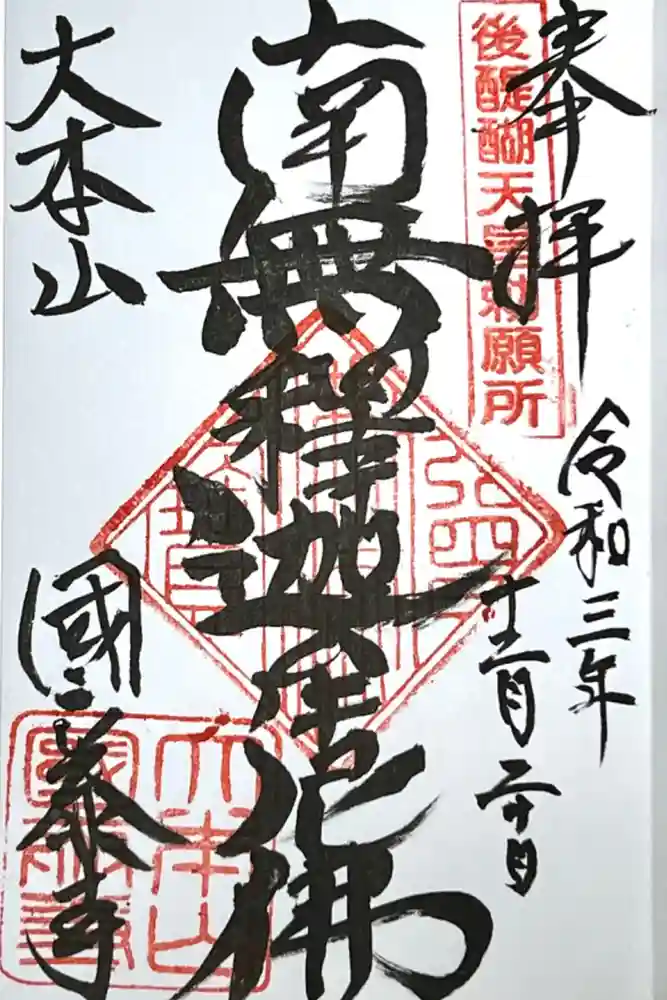 奉拝
後醍醐天皇勅願所
令和三年
十二月二十日
南無釋迦牟尼佛
大本山
國泰寺
大本山
國泰寺